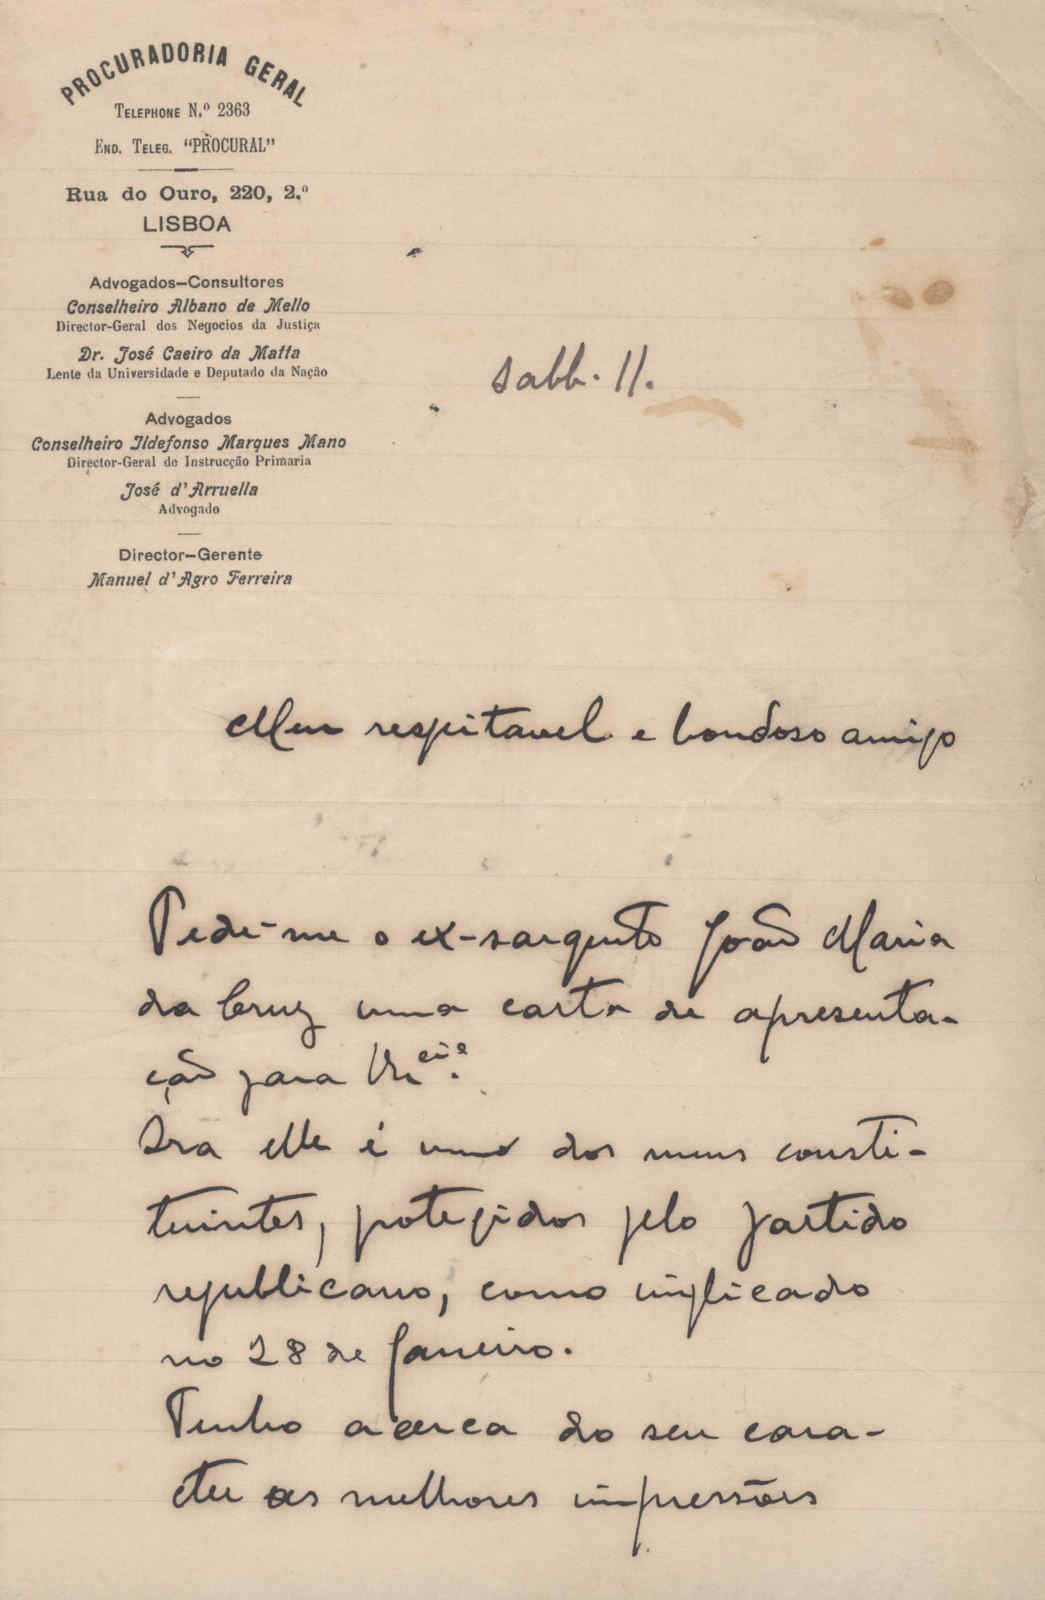 PROCURADORIA GERAL
TELEPHONE N.º 2363
END. TELEG. "PROCURAL"
Rua do Ouro, 220, 2.º
LISBOA
Advogados-Consultores
Conselheiro Albano de Mello
Director-Geral dos Negocios da Justiça
Dr. José Caeiro da Matta
Lente da Universidade e Deputado da Nação
Advogados
Conselheiro Ildefonso Marques Mano
Director-Geral de Instrucção Primaria
José d'Arruella
Advogado
Director-Gerente
Manuel d'Agro Ferreira
Sabb. 11.
Meu respeitavel e bondoso amigo
Pede-me o ex-sargento João Maria
da Cruz uma carta de apresenta-
ção para V. Ex.cia
Ora elle é um dos meus consti-
tuintes, protegidos pelo partido
republicano, como implicado
no 28 de Janeiro.
Tenho acerca do seu cara-
cter as melhores impressões